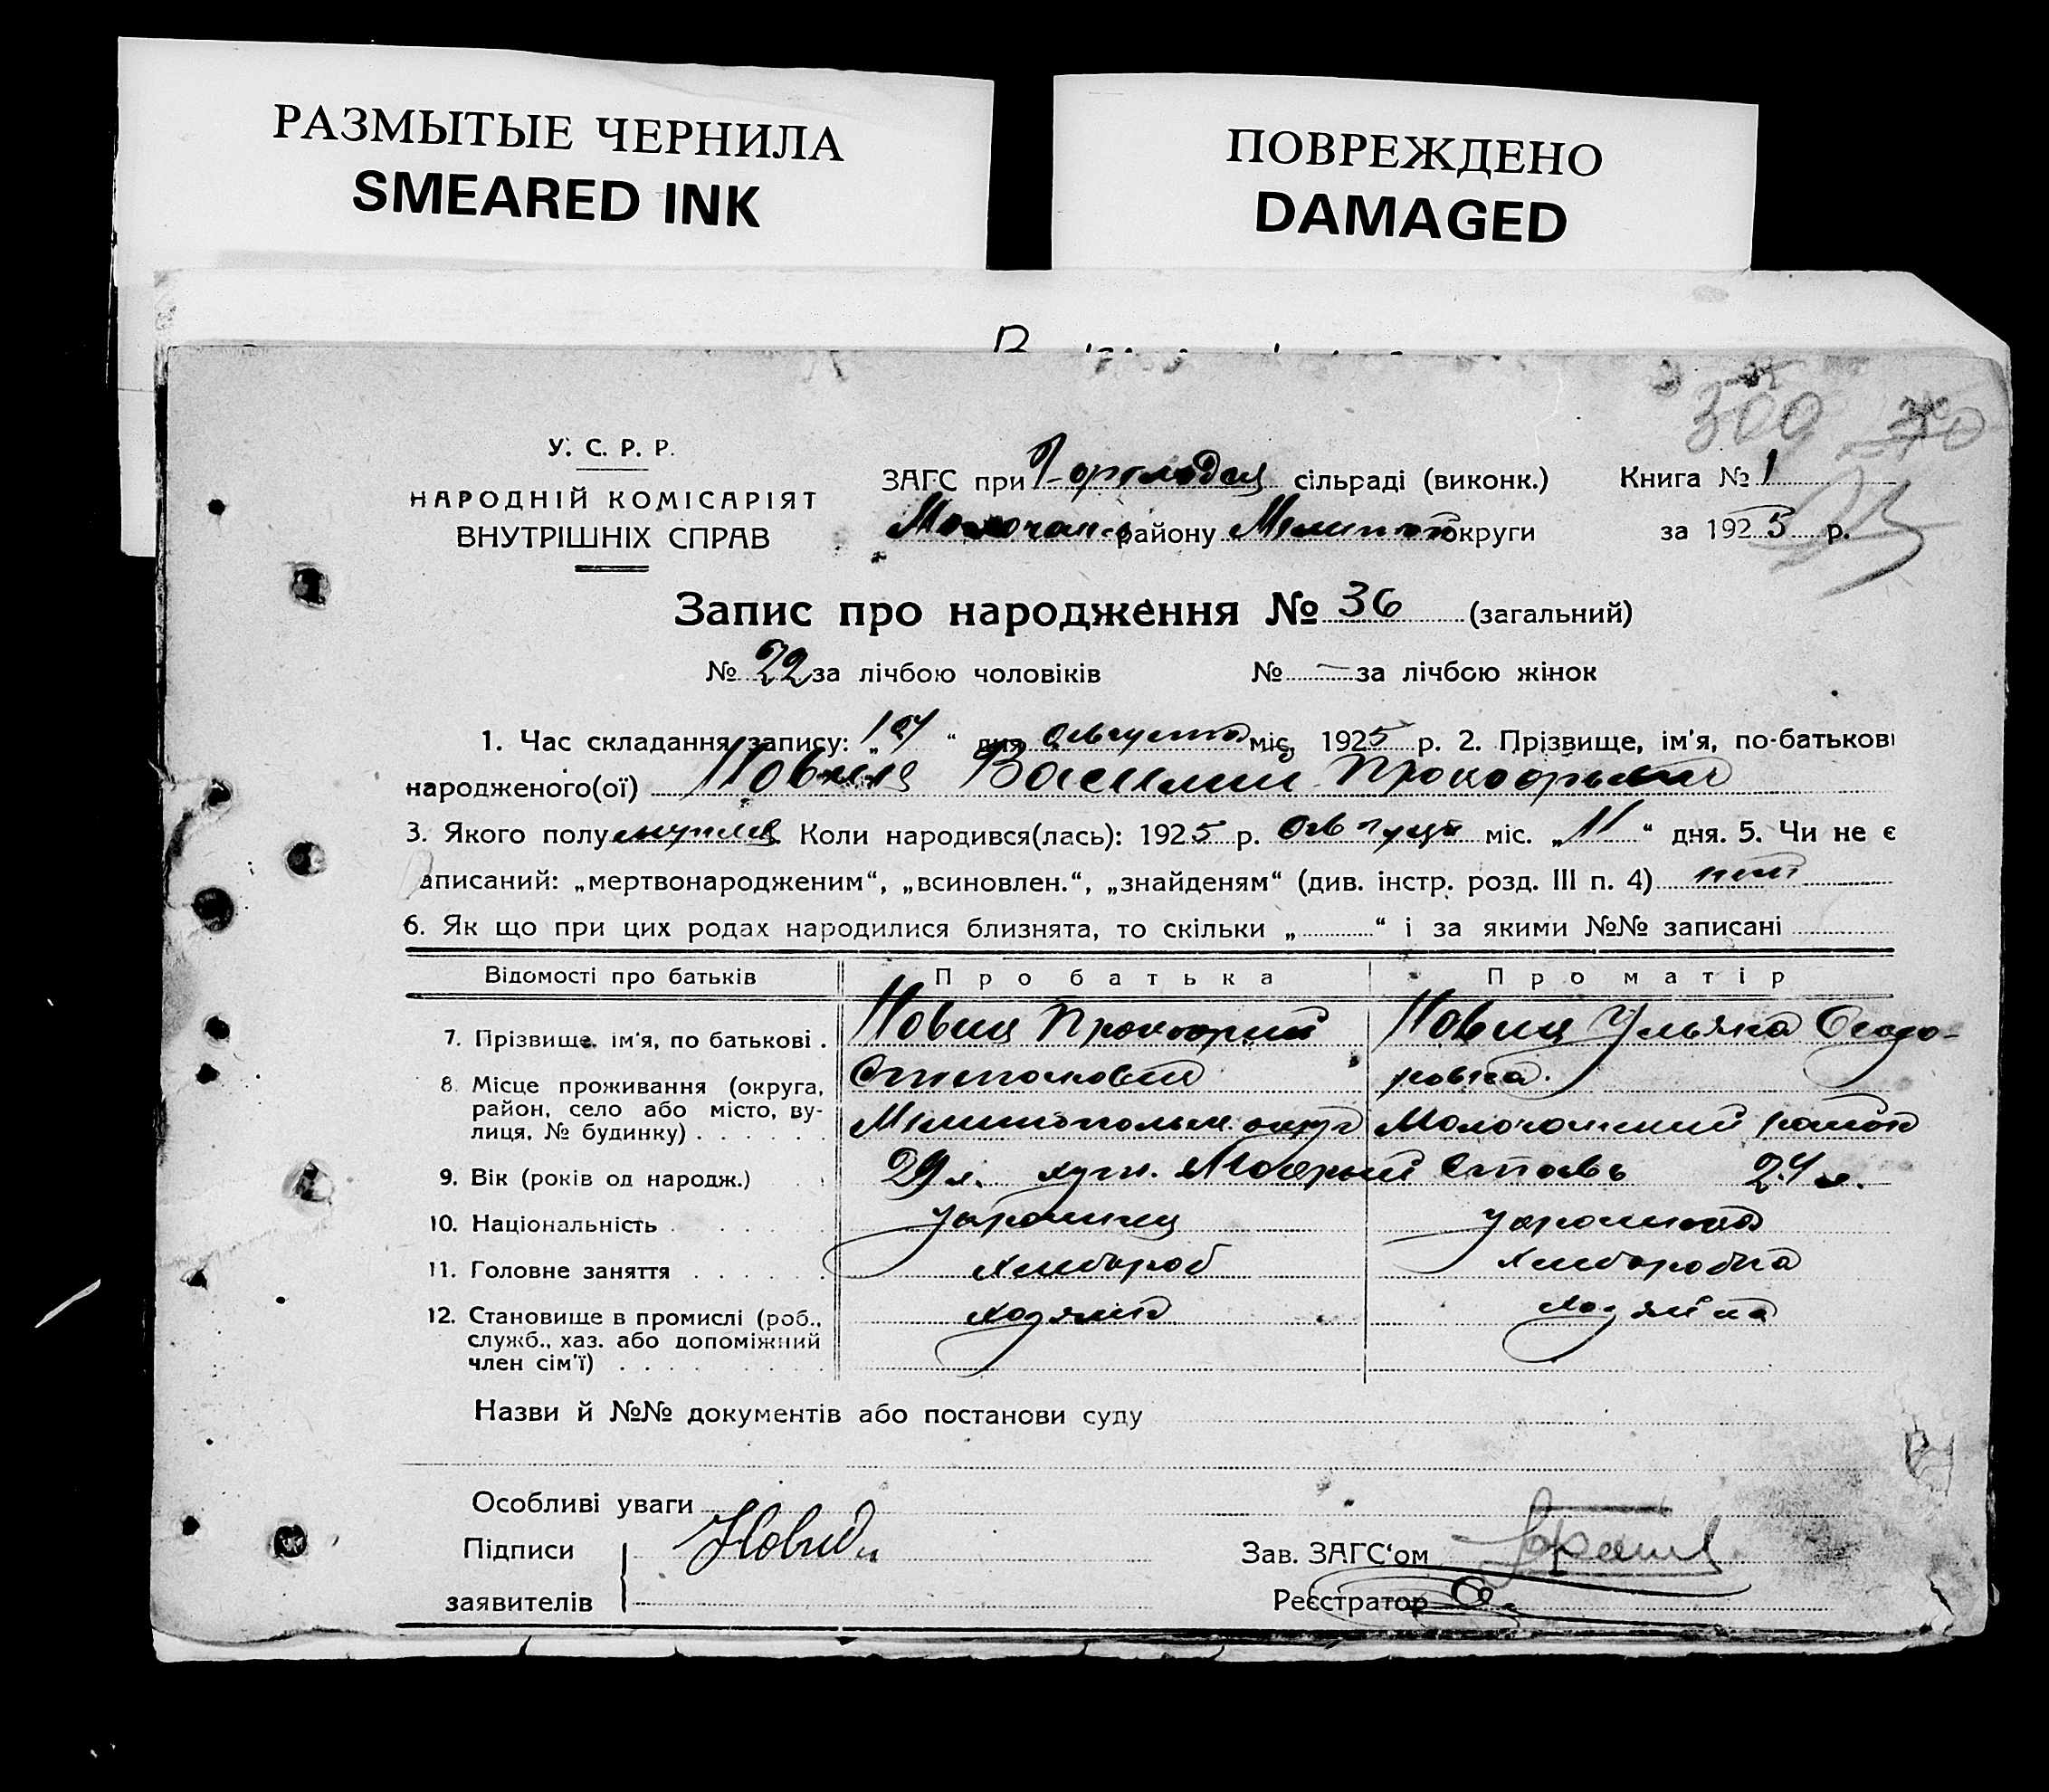 РАЗМЫТЫЕ ЧЕРНИЛА
SMEARED INK
ПОВРЕЖДЕНО
DAMAGED
300
У. С. Р. Р.
НАРОДНІЙ КОМІСАРІЯТ
ВНУТРІШНІХ СПРАВ
ЗАГС при сільраді (виконк.) Книга № 1
Молочанс району Мелитоп округи за 1925 р.
Запис про народження № 36 (загальний)
№ 22 за лічбою чоловіків № — за лічбою жінок
1. Час складання запису: „ “ дня августа міс. 1925 р. 2. Прізвище, ім'я, по-батькові
народженого(ої) Василий Прокофьевич
3. Якого полу Коли народився(лась): 1925 р. август міс. „11“ дня. 5. Чи не є
аписаний: „мертвонародженим“, „всиновлен.“, „знайденям“ (див. інстр. розд. III п. 4) нет
6. Як що при цих родах народилися близнята, то скільки „ “ і за якими №№ записані
Відомості про батьків Про батька Про матір
7. Прізвище, ім'я, по батькові . Новиц Прокофий Новиц Ульяна Феодо-
8. Місце проживання (округа, район, село або місто, вулиця, № будинку) . . . . . . ровна.
Мелитопольск. округ Молочанский район
9. Вік (років од народж.) 29 л. хут. Ставъ 24 л.
10. Національність украинец украинка
11. Головне заняття . . . . . . хлебороб хлеборобка
12. Становище в промислі (роб., служб., хаз. або допоміжний член сім'ї) . . . . . . . хозяин хозяйка
Назви й №№ документів або постанови суду
Особливі уваги
Підписи
заявителів
Зав. ЗАГС'ом
Реєстратор